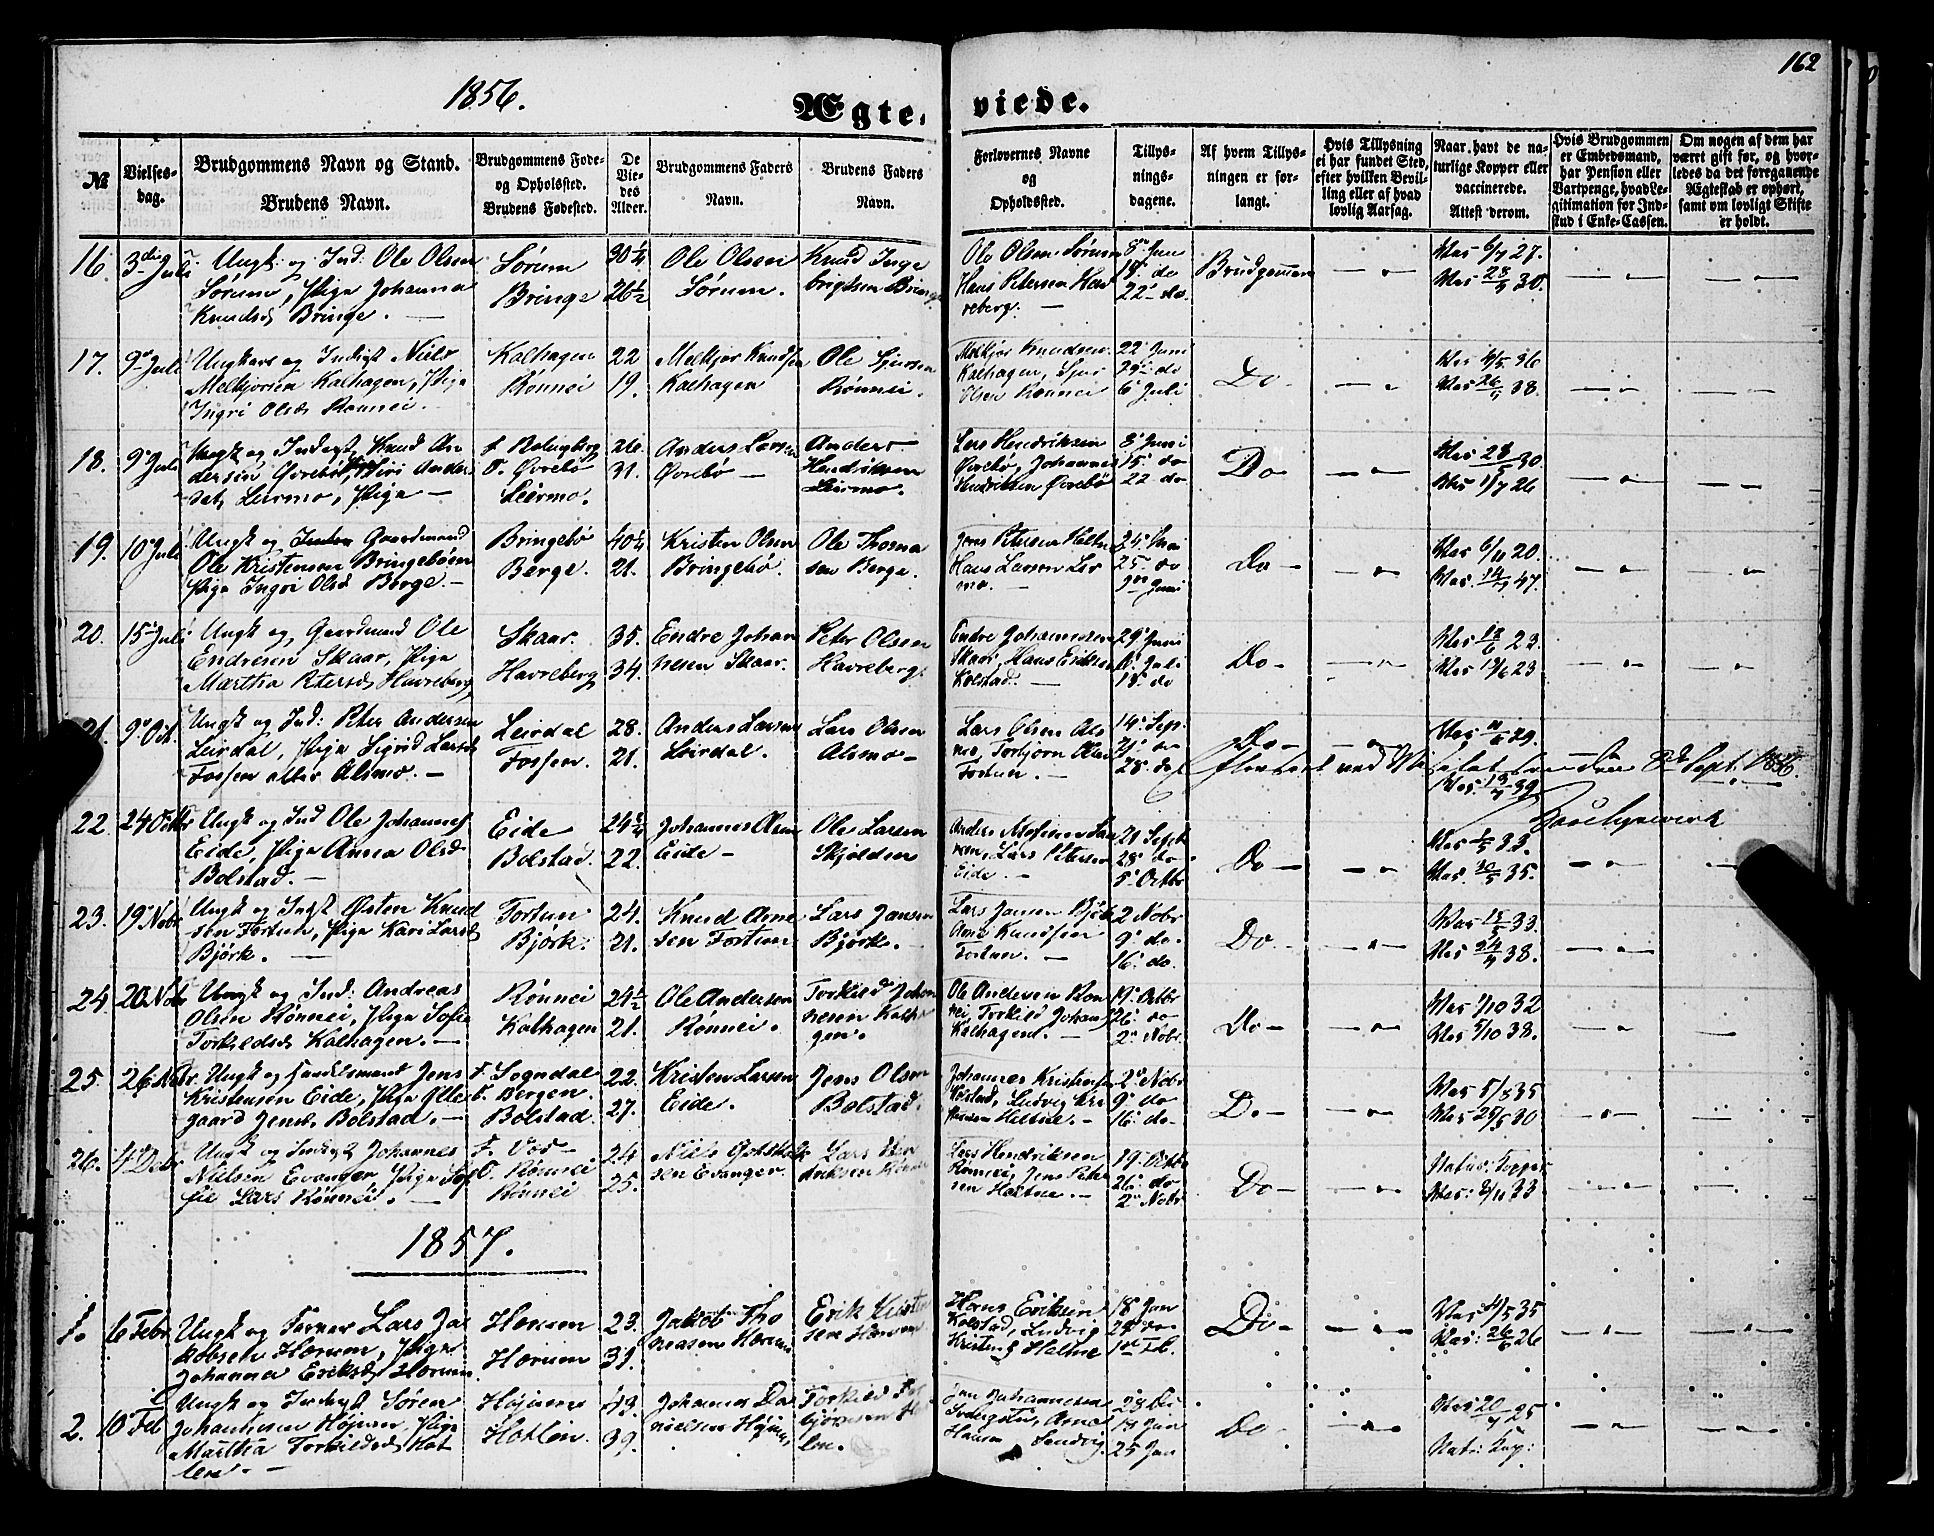 162
1856.
Ægte-
viede.
№
Vielses-
dag.
Brudgommens Navn og Stand.
Brudens Navn.
Brudgommens Føde-
og Opholdssted.
Brudens Fødested.
De
Vie-
des
Alder.
Brudgommens Faders
Navn.
Brudens Faders
Navn.
Forlovernes Navne
og
Opholdssted.
Tillys-
nings-
dagene.
Af hvem Tillys-
ningen er for-
langt.
Hvis Tillysning
ei har fundet Sted,
efter hvilken Bevil-
ling eller af hvad
lovlig Aarsag.
Naar havt de na-
turlige Kopper eller
vaccinerede.
Attest derom.
Hvis Brudgommen
er Embedsmand,
har Pension eller
Vartpenge, hvad Le-
gitimation for Ind-
skud i Enke-Cassen.
Om nogen af dem har
været gift før, og hvor-
ledes da det foregaaende
Ægteskab er ophørt,
samt om lovligt Skifte
er holdt.
16. 3die Juli
Ungk. og Ind. Ole Olsen
Sørum, Pige Johanna
Knudsd. Bringe. —
Sørum
Bringe
30 1/4
26 1/2
Ole Olsen
Sørum.
Knud Inge
brigtsen Bringe
Ole Olsen Sørum
Hans Petersen Hav
reberg. —
8de Jun
18 do
22 do.
Brudgommen
Vac 6/7 27.
Vac 28/5 30.
17. 9de Juli
Ungkarl og Indigt Niels
Melkjorsen Kalhagen, Pige
Ingri Olsd. Rønnei.
Kalhagen
Rønnei
22
19.
Melkjor Knudsen
Kalhagen
Ole Sjursen
Rønnei.
Melkjor Knudsen
Kalhagen, Sjur
Olsen Rønnei
22 Juni
29 do
6 Juli
Do
Vac 4/5 36
Vac 26/4 38.
18. 9 Juli
Ungk og Indigt Knud An
dersen Øvrebø, Siri Anders
dat. Leirmo, Pige —
O. Øvrebø
Leirmo.
26.
31.
Anders Larsen
Øvrebø —
Anders
Hendriksen
Leirmo.
Lars Hendriksen
Øvrebø, Johannes
Hendriksen Øvrebø
8 Juni
15 do
22 do
Do
Vac 28/5 30.
Vac 1/7 26
19. 10 Juli
Ungk og Gaardmand
Ole Kristensen Bringebøen
Pige Ingri Olsd Berge. —
Bringebø
Berge.
40 1/4
21.
Kristen Olsen
Bringebø.
Ole Thoma
sen Berge.
Jens Petersen Heltne
Hans Larsen Leir
mo. —
24 Mai
25 do
1ste Juni
Do
Vac 6/11 20.
Vac. 14/7 47.
20. 15 Juli
Ungk og Gaardmand Ole
Endresen Skaar, Pige
Martha Petersd. Havreberg
Skaar.
Havreberg
35.
34.
Endre Johan
nesen Skaar.
Peter Olsen
Havreberg.
Endre Johannesen
Skaar, Hans Eriksen
Kolstad. —
29 Juni
6 Juli
13 do
Do
Vac 12/6 22.
Vac 12/6 23
21. 9 Oct.
Ungk og Ind: Peter Andersen
Leirdal, Pige Sigrid Larsd.
Fossen eller Alsmo. —
Leirdal
Fossen.
28.
21.
Anders Larsen
Leirdal.
Lars Olsen
Alsmo —
Lars Olsen Als
mo, Torbjørn Olsen
Fortun. —
14 Sept.
21 do
28 do
Do
Vac 29.
Vac. 13/7 39
ved Visitatsen den 8de Sept. 1856.
22. 24 Octbr
Ungk og Ind Ole Johannes
Eide, Pige Anna Olsd
Bolstad. —
Eide
Bolstad.
24 3/4
22.
Johannes Olsen
Eide —
Ole Larsen
Skjolden
Lars Petersen
Eide. —
21 Sept
28 do
5 Octbr
Do
Vac 1/5 33.
Vac. 30/5 35.
23. 19 Nobr
Ungk og Indgt Østen Knud
sen Fortun, Pige Kari Larsd
Bjørk. —
Fortun
Bjørk.
24.
21.
Knud Arne
sen Fortun
Lars Jansen
Bjørk. —
Lars Jansen Bjørk
Arne Knudsen
Fortun. —
2 Nobr
9 do.
16 do.
Do
Vac 15/5 33.
Vac 24/4 38.
24. 20 Nobr
Ungk og Ind. Andreas
Olsen Rønnei, Pige Sofie
Torkildsd. Kalhagen. —
Rønnei
Kalhagen
24 1/2
21.
Ole Andersen
Rønnei.
Torkild Johan
nesen Kalha
gen.
Ole Andersen Røn
nei, Torkild Johans
Kalhagen. —
19 Octbr
26 do
2 Nobr.
Do
Vac 7/10 32
Vac 5/10 38.
25. 26 Nobr.
Ungk og Handelsmand Jens
Kristensen Eide, Pige Olle
gaard Jensd. Bolstad. —
F. Sogndal
O. Bergen.
Bolstad.
22.
27.
Kristen Larsen
Eide.
Jens Olsen
Bolstad.
Johannes Kristensen
Kolstad, Ludvig Kri
stensen Heltne. —
2 Nobr
9 do
16 do.
Do
Vac 5/5 35
Vac 25/5 30
26. 4 Debr
Ungk og Indigt Johannes
Nielsen Evanger, Pige Sof
fie Lars Rønnei. —
F. Vos —
O. Rønnei
Rønnei
24
25.
Niels Gotskalk
sen Evanger.
Lars Hen
driksen Rønnei
Lars Hendriksen
Rønnei, Jens Peter
sen Heltne. —
19 Octbr
26 do
2 Nobr
Do
Natur: Kopper
Vac: 2/11 33
1857.
1. 6 Febr
Ungk og Ferner Lars Ja
kobsen Hærum, Pige
Johanna Eriksd. Hærum.
Hærum
Hærum
23.
39.
Jakob Tho
measen Hærum
Erik Kristen
sen Hærum
Hans Eriksen
Kolstad, Ludvig
Kristens Heltne
18 Jan
25 do
1ste Fb.
Do
Vac 4/5 35
Vac: 26/6 26
2. 10 Feb
Ungk og Indigt Søren
Johannesen Højum, Pige
Martha Torkildsd. Høt
len. —
Højum
Høtlen.
43.
39.
Johannes Da
nielsen Højum,
Torkild Tor
bjørnsen Høt
len.
Jan Johannesen
Arne
Hansen Sandvig.
28 De
18 Jan
25 Jan
Do
Vac 20/7 25
Natr: Kop: